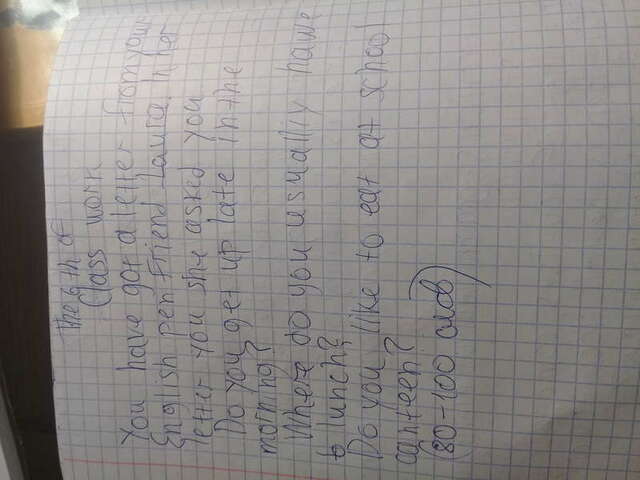 The 6th of
Class work
You have got a letter from your
English pen friend Laura. In her
letter you she asked you
Do you get up late in the
morning?
Where do you usually have
lunch?
Do you like to eat at school
canteen?
(80-100 слов)